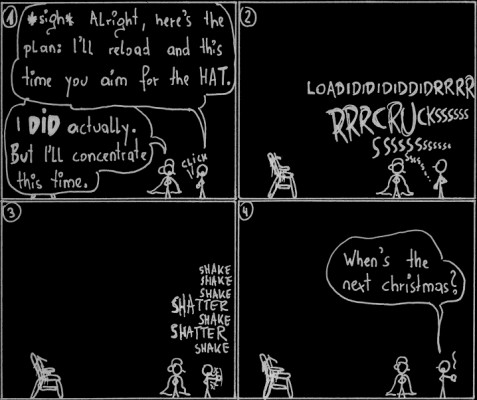 1
*sigh* Alright, here's the
plan: I'll reload and this
time you aim for the HAT.
I DID actually.
But I'll concentrate
this time.
CLICK
2
LOADIDIDIDIDDIDRRRR
RRRCRUCKSSSSSS
SSSSSSSSSSSS
3
SHAKE
SHAKE
SHAKE
SHATTER
SHAKE
SHATTER
SHAKE
4
When's the
next christmas?